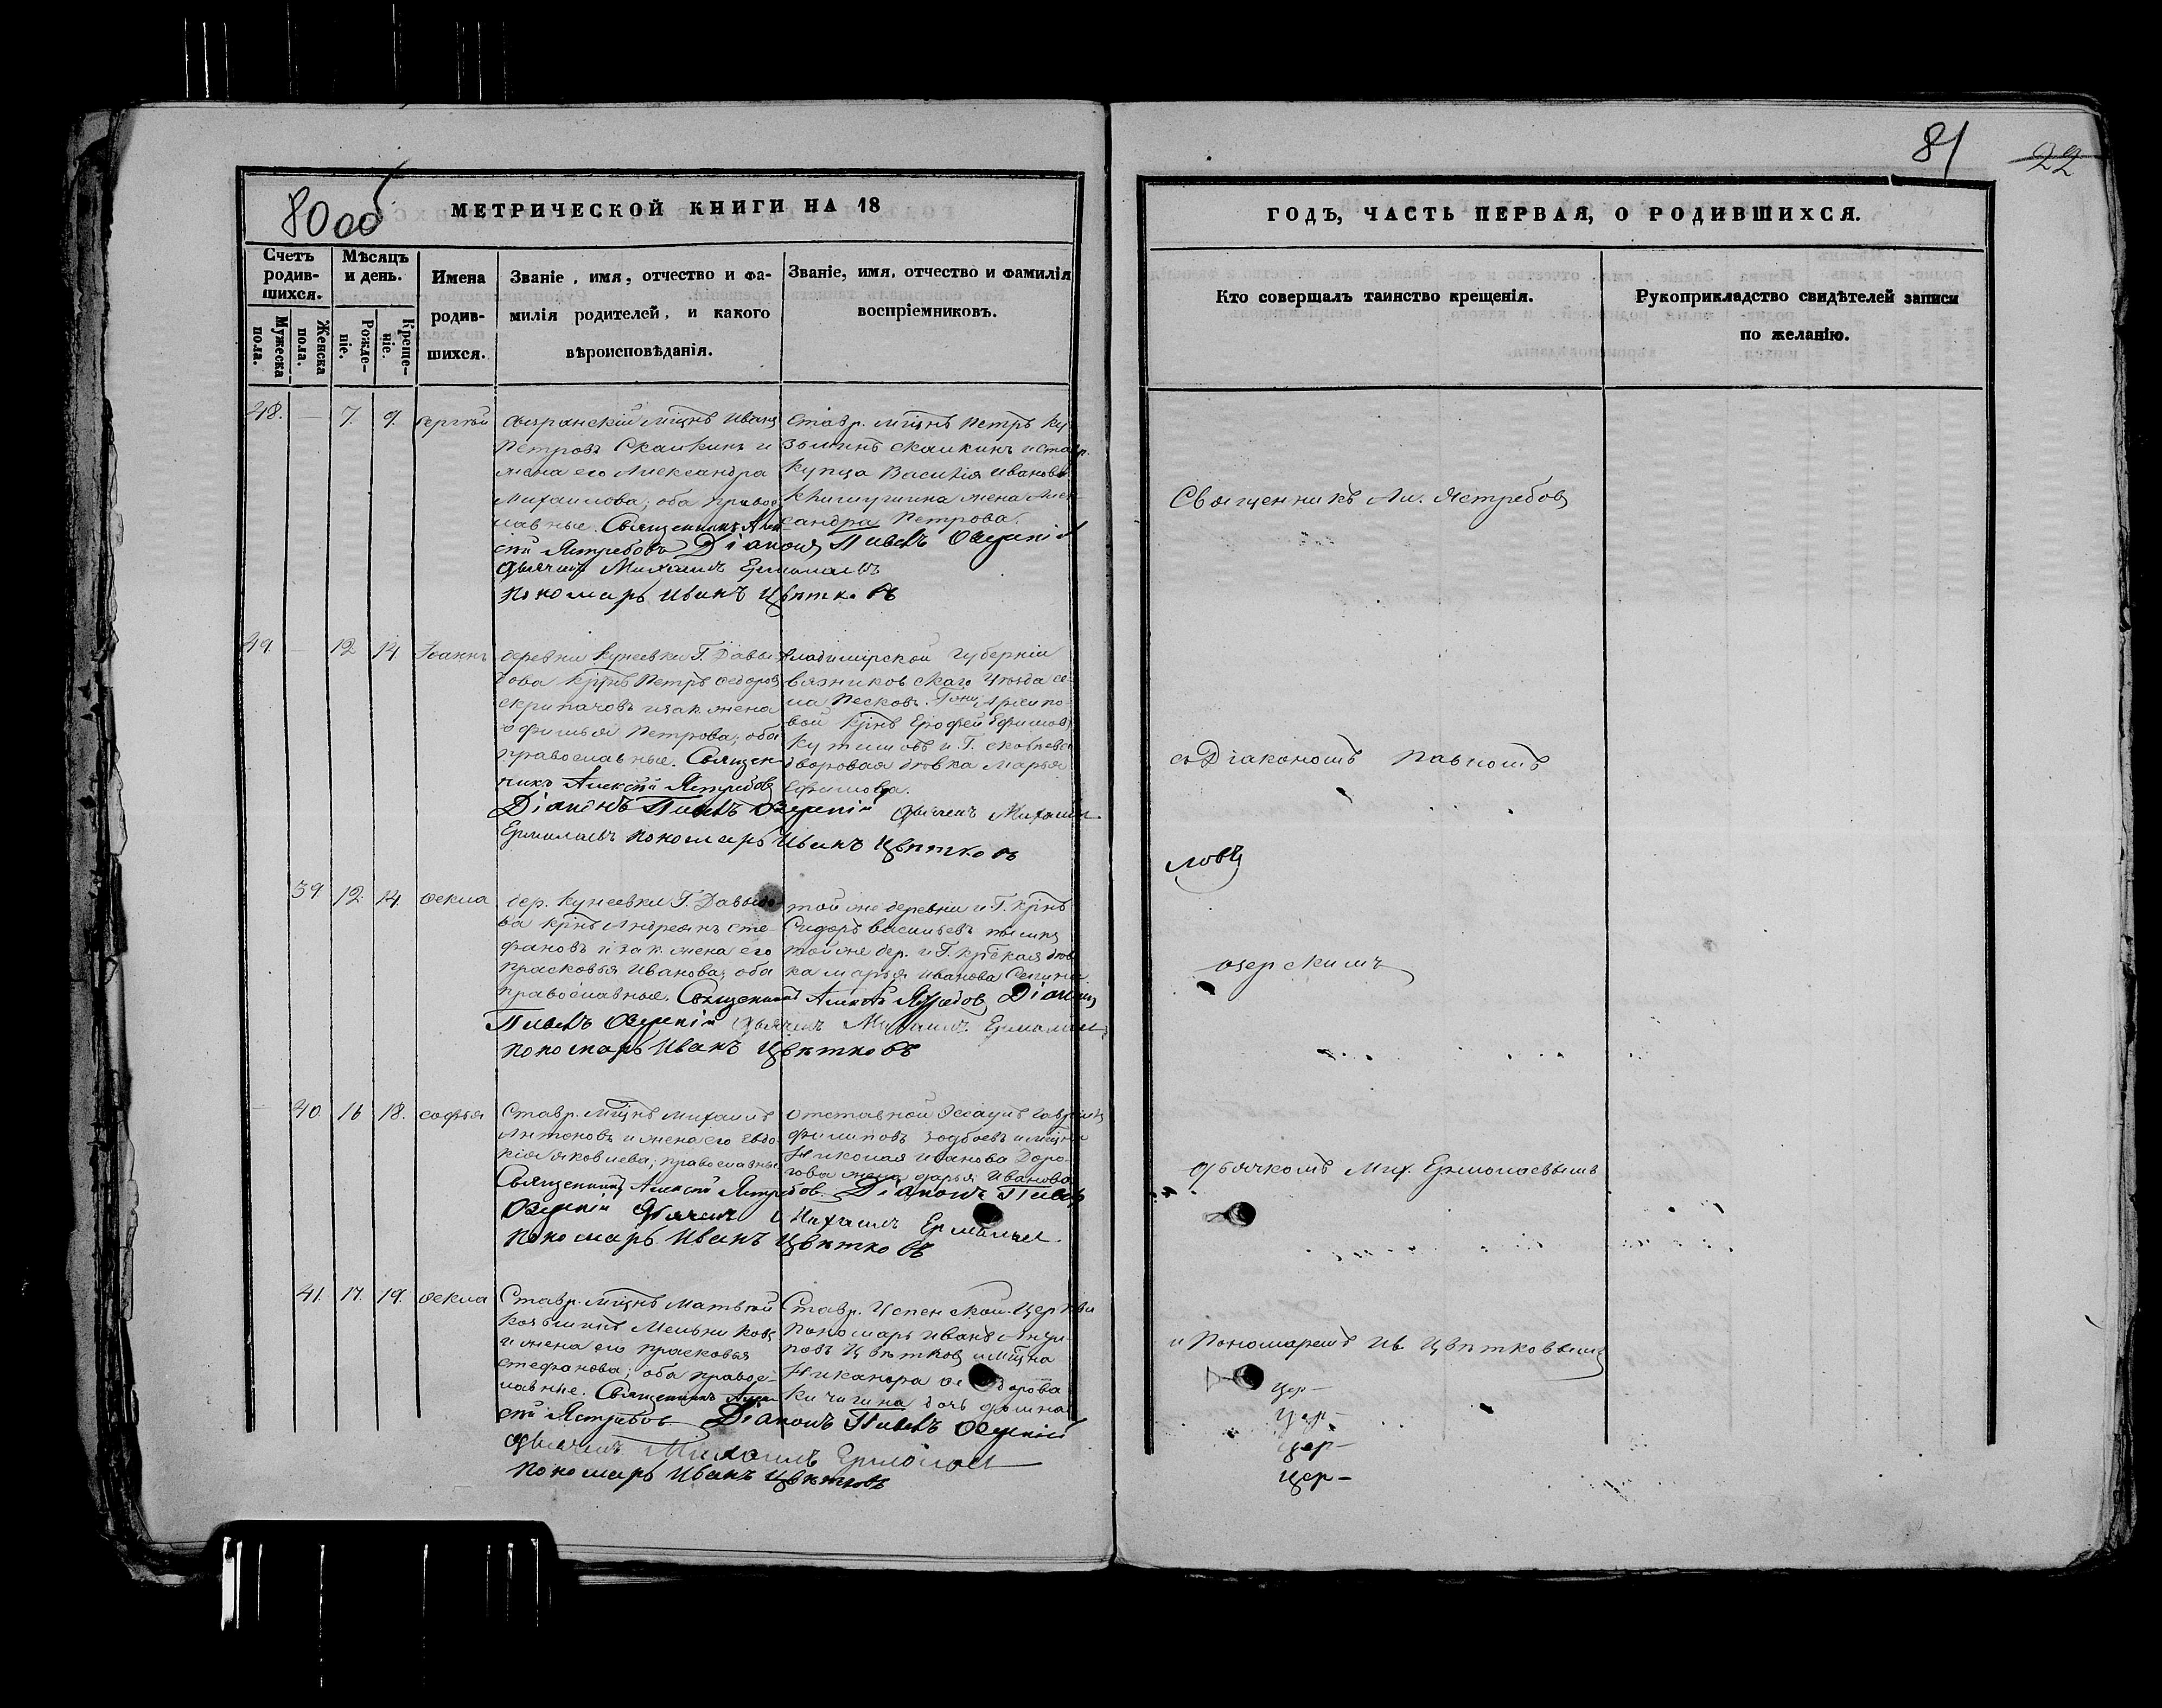 80 об
МЕТРИЧЕСКОЙ КНИГИ НА 18
Счетъ родив-шихся.
Мужеска пола.
Женска пола.
Мѣсяцъ и день.
Рожде-ніе.
Креще-ніе.
Имена родив-шихся.
Званіе, имя, отчество и фа-
милія родителей, и какого
вѣроисповѣданія.
Званіе, имя, отчество и фамилія
воспріемниковъ.
48. — 7. 9. Сергѣй
Сызранскій мѣщнъ Иванъ
Петровъ Скалкинъ и
жена его Александра
Михаилова; оба правос
лавные. Священникъ Алек
сѣй Ястребовъ Діаконъ Павелъ Озерскій
Дьячекъ Михаилъ Ермолаевъ
Пономарь Иванъ Цвѣтковъ
Ставр. мѣщнъ Петръ Ку
зьминъ Скалкинъ и Ставр.
купца Василія Иванова
жена Алек
сандра Петрова.
49. — 12 14 Іоаннъ
деревни Кунеевки Г. Давы
дова крѣнъ Петръ Ѳедоровъ
Скрипачовъ и зак. жена
Офимья Петрова; оба
православные. Священ
никъ Алексѣй Ястребовъ
Діаконъ Павелъ Озерскій Дьячекъ Михаилъ
Ермолаевъ Пономарь Иванъ Цвѣтковъ
Владимірской губерніи
Вязниковскаго уѣзда се
ла Песковъ. Архипо
вой крѣнъ Ерофей Ефимовъ
и Г.
дворовая дѣвка Марья
Ефимова.
39 12. 14. Ѳекла
дер. Кунеевки Г. Давыдо
ва крѣнъ Андреянъ Сте
фановъ и зак. жена его
Прасковья Иванова; оба
православные. Священникъ Алексѣй Ястребовъ Діаконъ
Павелъ Озерскій Дьячекъ Михаилъ Ермолаевъ
Пономарь Иванъ Цвѣтковъ
той же деревни и Г. крѣнъ
Сидоръ Васильевъ
той же дер. и Г. крѣская дѣв
ка Марья Иванова
40. 16 18. Софья
Ставр. мѣщнъ Михаилъ
Антоновъ и жена его Евдо
кія Яковлева; православные
Священникъ Алексѣй Ястребовъ Діаконъ Павелъ
Озерскій Дьячекъ Михаилъ Ермолаевъ
Пономарь Иванъ Цвѣтковъ
отставной Эсаулъ Гаврилъ
Филиповъ и мѣщна
Николая Иванова Доро
гова жена Дарья Иванова
41. 17. 19. Ѳекла
Ставр. мѣщнъ Матвѣй
Козьминъ Мельниковъ
и жена его Прасковья
Стефанова; оба правос-
лавные. Священникъ Алек
сѣй Ястребовъ Діаконъ Павелъ Озерскій
Дьячекъ Михаилъ Ермолаевъ
Пономарь Иванъ Цвѣтковъ
Ставр. Успенской Церкви
Пономарь Иванъ
Цвѣтковъ и мѣщна
Никанора
Кичигина дочь
81
22
ГОДЪ, ЧАСТЬ ПЕРВАЯ, О РОДИВШИХСЯ.
Кто совершалъ таинство крещенія.
Рукоприкладство свидѣтелей записи
по желанію.
Священникъ Ал. Ястребовъ
съ Діакономъ Павломъ
Озерскимъ
дьячкомъ Мих. Ермолаевымъ
и Пономаремъ Ив. Цвѣтковымъ
Цер-
Цер-
Цер-
Цер-